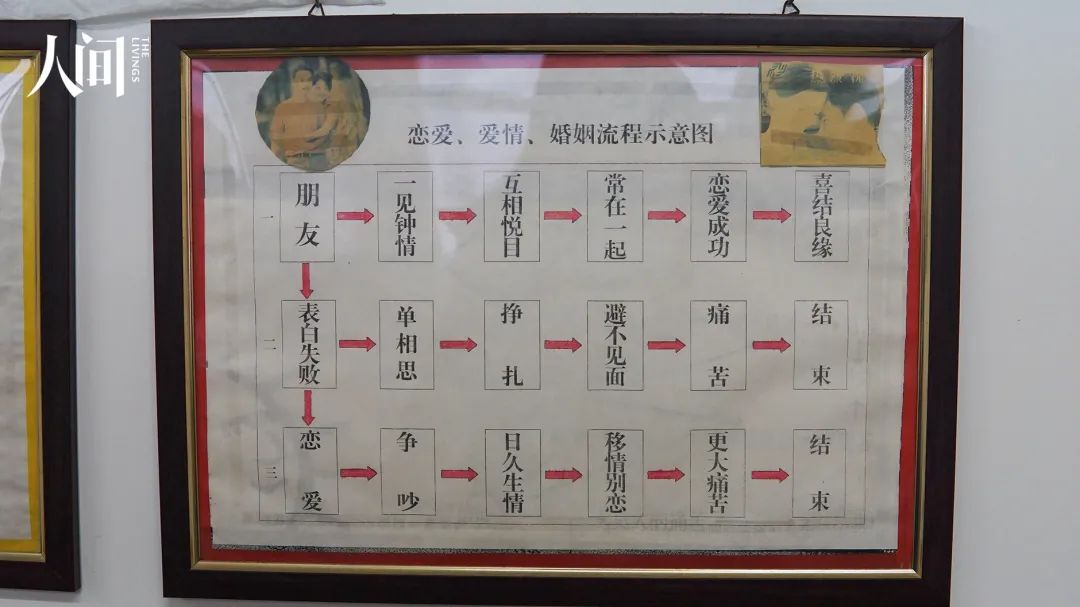 人间
THE LIVINGS
恋爱、爱情、婚姻流程示意图
一
朋友
一见钟情
互相悦目
常在一起
恋爱成功
喜结良缘
二
表白失败
单相思
挣扎
避不见面
痛苦
结束
三
恋爱
争吵
日久生情
移情别恋
更大痛苦
结束